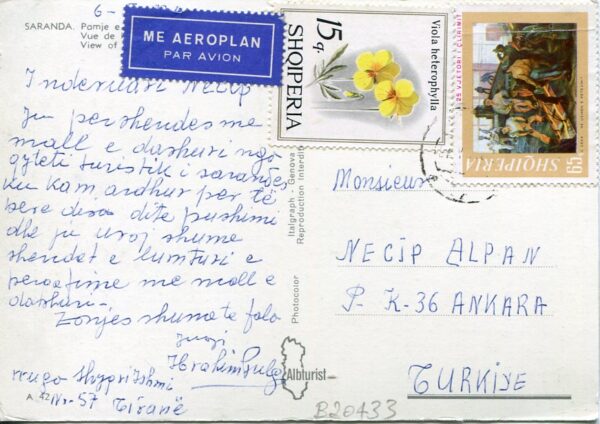 6-
SARANDA. Pamje e
Vue de
View of
ME AEROPLAN
PAR AVION
15q.
SHQIPERIA
Viola heterophylla
25 VJETORI I ÇLIRIMIT
SHQIPERIA
65
Inderuari Necip
Ju pershendes me
mall e dashuri nga
qyteti turistik i sarandes
ku kam ardhur per te
bere disa dite pushimi
dhe ju uroj shume
shendet e lumturi e
me mall e
dashuri-
Zonjes shume te fala
juaji
Ibrahim
rruga
Nr-57 Tiranë
A 42
Italgraph - Genova
Reproduction Interdite
Photocolor
Albturist
Monsieur
NECIP ALPAN
P-K-36 ANKARA
TURKIYE
B20433